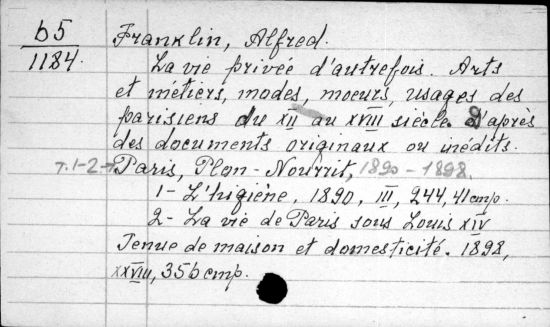 b5
1184.
Franklin, Alfred.
La vie privée d'autrefois. Arts
et métiers, modes, moeurs, usages des
parisiens du XII au XVIII siècle. D'après
des documents originaux ou inédits.
T. 1-2. Paris, Plon-Nourrit, 1890-1898.
1- L'higiène, 1890, III, 244, 41 cmp.
2- La vie de Paris sous Louis XIV
Tenue de maison et domesticité. 1898,
XXVIII, 356 cmp.